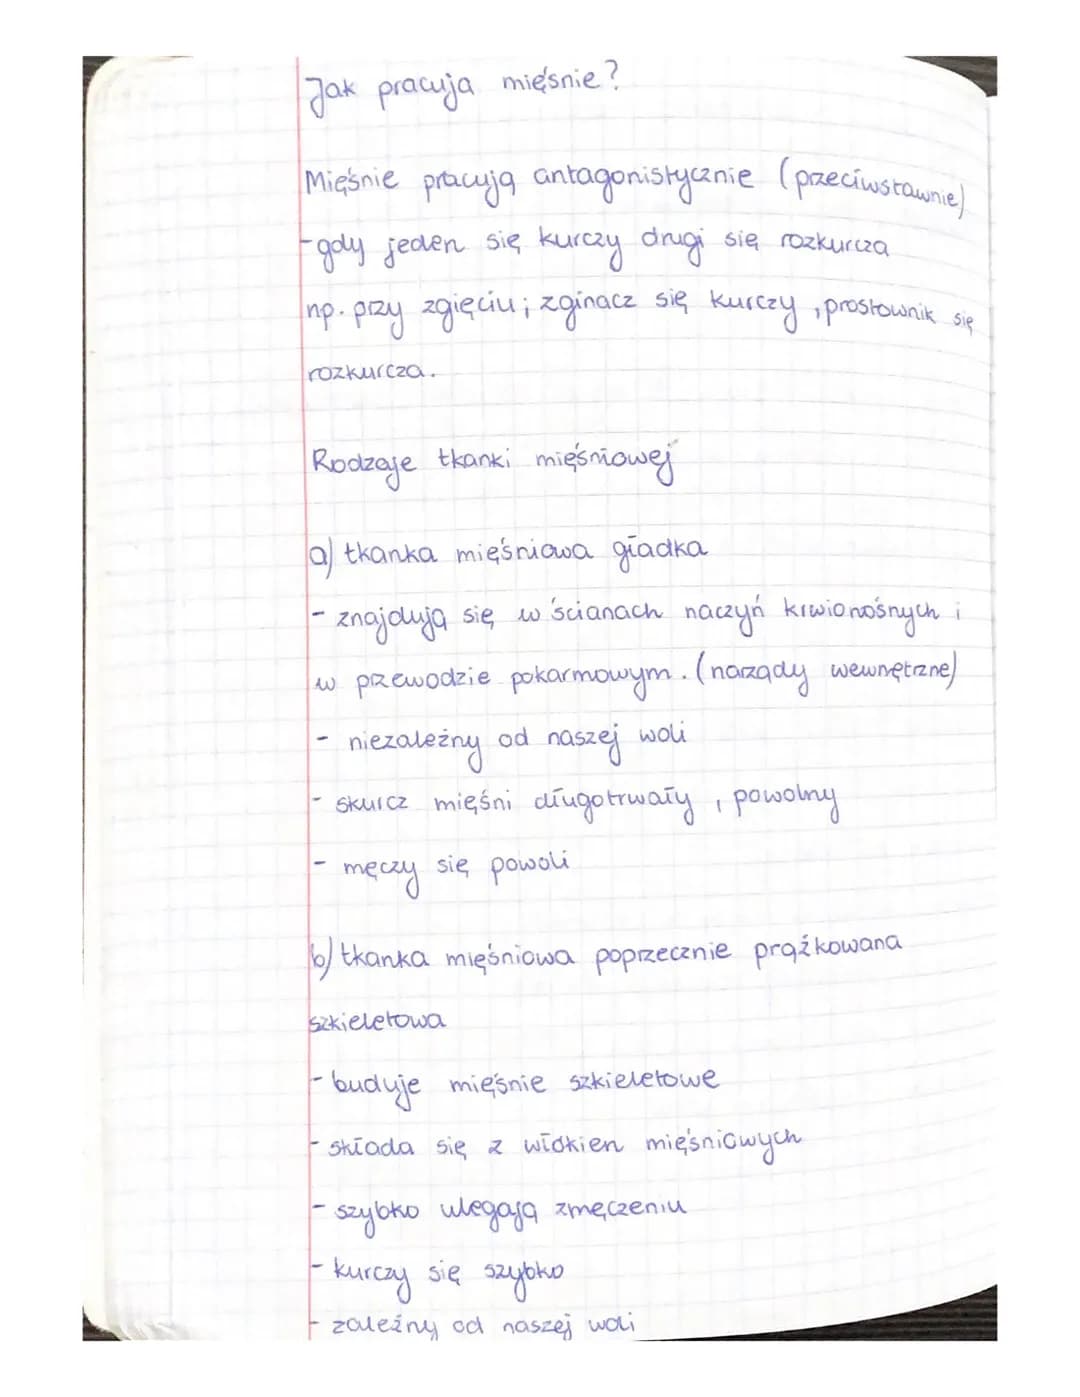 Jak pracują mięśnie?
Mięśnie pracują antagonistycznie (przeciwstawnie)
-gdy jeden się kurczy drugi się rozkurcza
np. przy zgięciu; zginacz się kurczy, prostownik się
rozkurcza.
Rodzaje tkanki mięśniowej
a) tkanka mięśniowa gładka
- znajdują się w ścianach naczyń krwionośnych i
w przewodzie pokarmowym. (narządy wewnętrzne)
- niezależny od naszej woli
- skurcz mięśni długotrwały, powolny
- męczy się powoli
b) tkanka mięśniowa poprzecznie prążkowana
szkieletowa
- buduje mięśnie szkieletowe
- składa się z włókien mięśniowych
- szybko ulegają zmęczeniu
- kurczy się szybko
- zależny od naszej woli